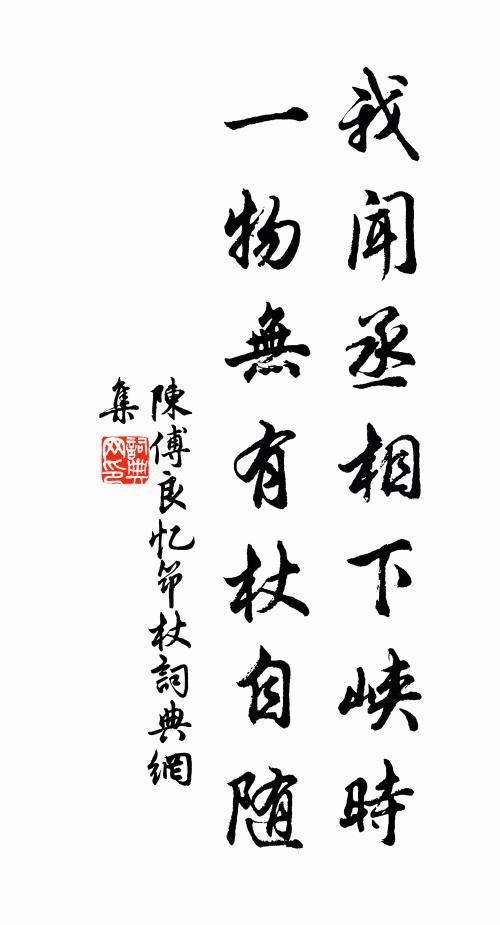 我聞丞相下峽時
一物無有杖自随
陳傅良忆笻杖詞典網
集
詞典網印